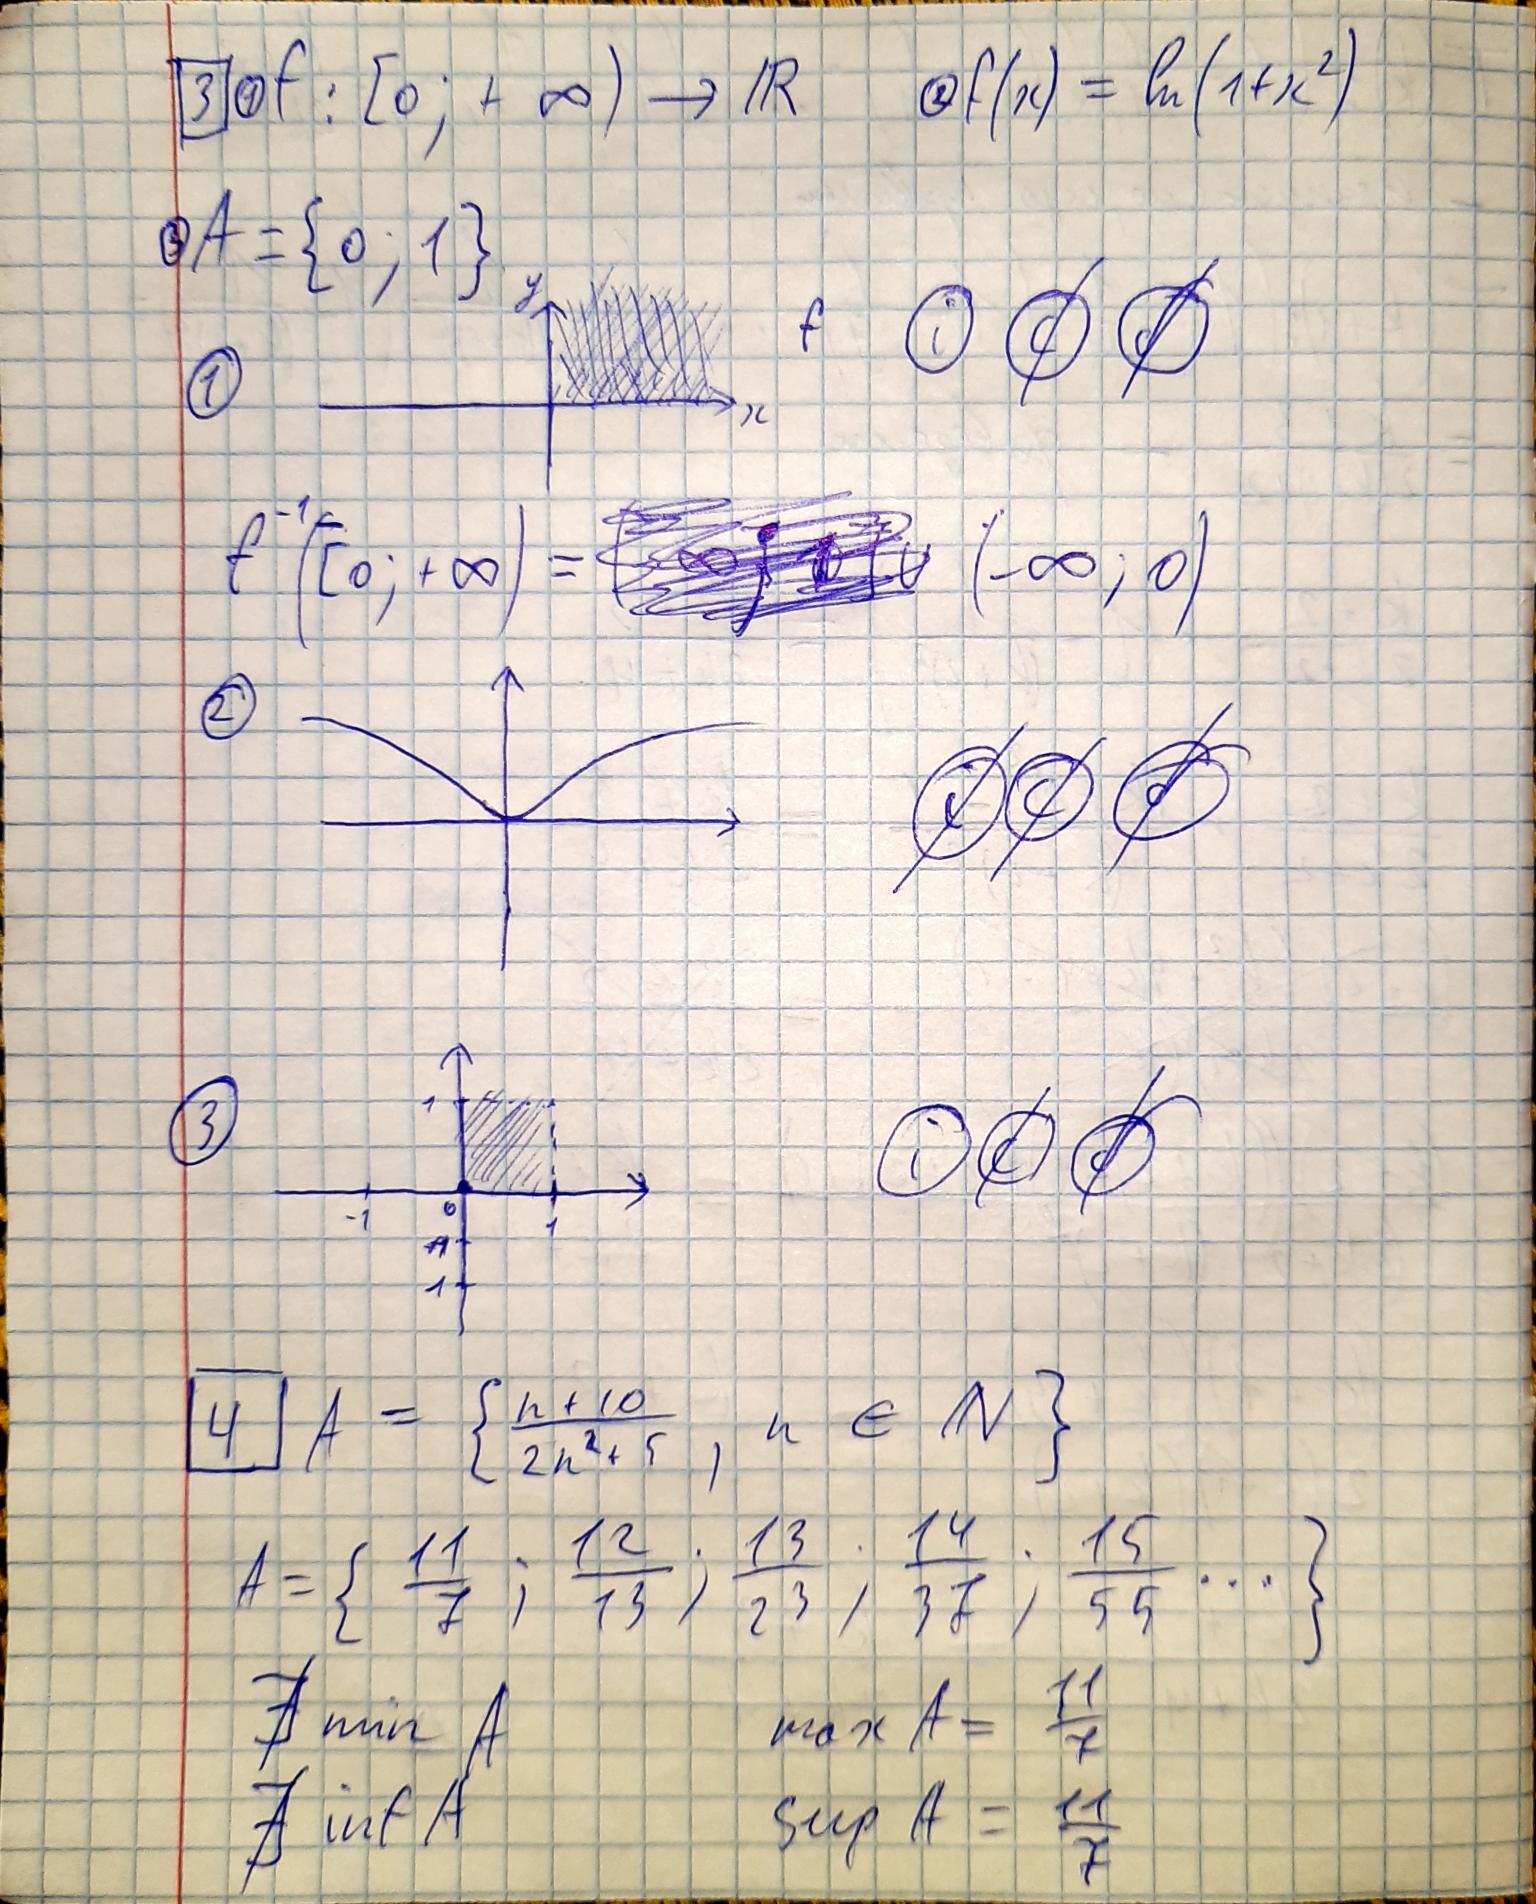 3 ① f : [0; +∞) → ℝ ② f(x) = ln(1+x²)
③ A = {0; 1}
y
① f i ȼ
x
f⁻¹([0; +∞) = (-∞; 0)
②
1
③ i
-1 0 1
1
4 A = {n+10/2n²+5, n ∈ N}
A = {11/7; 12/13; 13/23; 14/37; 15/55 ...}
∄ min A max A = 11/7
∄ inf A sup A = 11/7